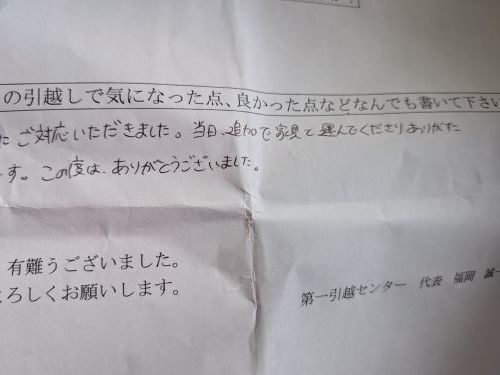 の引越しで気になった点、良かった点などなんでも書いて下さい
にご対応いただきました。当日、追加で家具を運んでくださりありがた
す。この度は、ありがとうございました。
有難うございました。
よろしくお願いします。
第一引越センター 代表 福岡 誠一